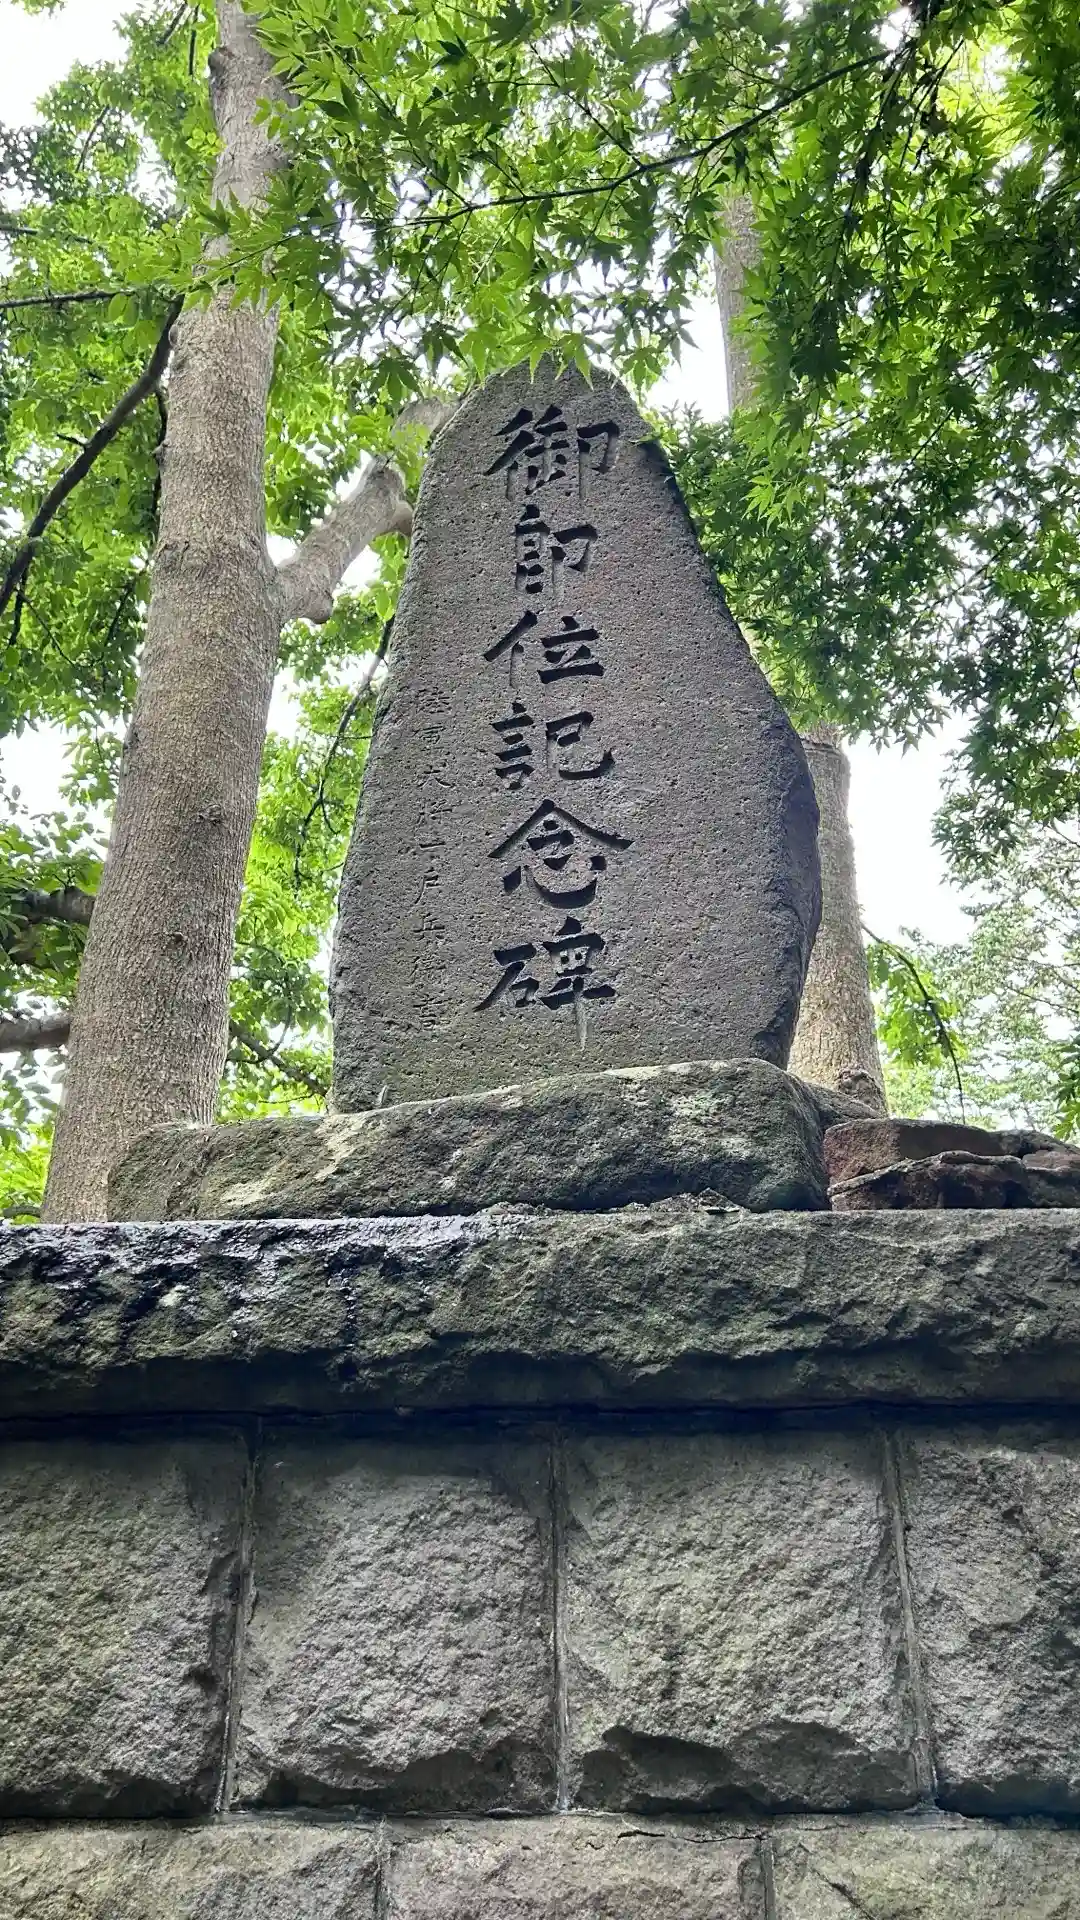 御即位記念碑
陸軍大将一戸兵衛書